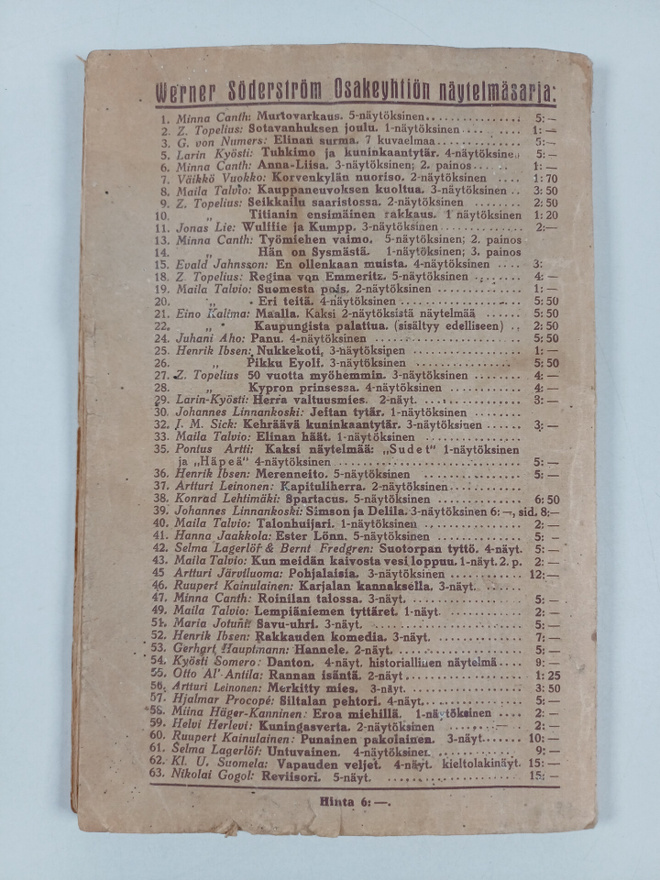 Werner Söderström Osakeyhtiön näytelmäsarja:
1. Minna Canth: Murtovarkaus. 5-näytöksinen................ 5: —
2. Z. Topelius: Sotavanhuksen joulu. 1-näytöksinen .......... 1: —
3. G. von Numers: Elinan surma. 7 kuvaelmaa............... 5:—
5. Larin Kyösti: Tuhkimo ja kuninkaantytär. 4-näytöksine. 5: —
6. Minna Canth: Anna-Liisa. 3-näytöksinen; 2. painos....... 1: —
7. Väikkö Vuokko: Korvenkylän nuoriso. 2-näytöksinen .... 1: 70
8. Maila Talvio: Kauppaneuvoksen kuoltua. 3-näytöksinen .. 3: 50
9. Z. Topelius: Seikkailu saaristossa. 2-näytöksinen ........ 2: 50
10. „ Titianin ensimäinen rakkaus. 1 näytöksinen 1: 20
11. Jonas Lie: Wulffie ja Kumpp. 3-näytöksinen............ 2:—
13. Minna Canth: Työmiehen vaimo. 5-näytöksinen; 2. painos
14. „ Hän on Sysmästä. 1-näytöksinen; 3. painos
15. Evald Jahnsson: En ollenkaan muista. 4-näytöksinen .... 3:
18. Z Topelius: Regina von Emmeritz. 5-näytöksinen ........ 4: —
19. Maila Talvio: Suomesta pois. 2-näytöksinen .............. 1: —
20. „ Eri teitä. 4-näytöksinen .................. 5: 50
21. Eino Kalima: Maalla. Kaksi 2-näytöksistä näytelmää ...... 5: 50
22. „ Kaupungista palattua. (sisältyy edelliseen) .. 2: 50
24. Juhani Aho: Panu. 4-näytöksinen ...................... 5: 50
25. Henrik Ibsen: Nukkekoti, 3-näytöksinen ................ 1: —
26. „ Pikku Eyolf. 3-näytöksinen .............. 5: 50
27. Z. Topelius 50 vuotta myöhemmin. 3-näytöksinen ........ 4: —
28. „ Kypron prinsessa. 4-näytöksinen ............ 4: —
29. Larin-Kyösti: Herra valtuusmies. 2-näyt. ............... 3: —
30. Johannes Linnankoski: Jeftan tytär. 1-näytöksinen ........
32. J. M. Sick: Kehräävä kuninkaantytär. 3-näytöksinen ...... 3: —
33. Maila Talvio: Elinan häät. 1-näytöksinen ..............
35. Pontus Artti: Kaksi näytelmää: „Sudet” 1-näytöksinen
ja „Häpeä” 4-näytöksinen ............................ 5: —
36. Henrik Ibsen: Merenneito. 5-näytöksinen ............... 5: —
37. Artturi Leinonen: Kapituliherra. 2-näytöksinen ..........
38. Konrad Lehtimäki: Spartacus. 5-näytöksinen ............ 6: 50
39. Johannes Linnankoski: Simson ja Delila. 3-näytöksinen 6: —, sid. 8;—
40. Maila Talvio: Talonhuijari. 1-näytöksinen .............. 2; —
41. Hanna Jaakkola: Ester Lönn. 5-näytöksinen ............. 5: —
42. Selma Lagerlöf & Bernt Fredgren: Suotorpan tyttö. 4-näyt. 5: —
43. Maila Talvio: Kun meidän kaivosta vesi loppuu. 1-näyt. 2. p. 2: —
45 Artturi Järviluoma: Pohjalaisia. 3-näytöksinen .......... 12:—
46. Ruupert Kainulainen: Karjalan kannaksella. 3-näyt. ......
47. Minna Canth: Roinilan talossa. 3-näyt. ................. 5: —
49. Maila Talvio: Lempiäniemen tyttäret. 1-näyt. ............ 2: —
51. Maria Jotuni: Savu-uhri. 3-näyt. ...................... 5: —
52. Henrik Ibsen: Rakkauden komedia. 3-näyt. .............. 7: —
53. Gerhart Hauptmann: Hannele. 2-näyt. .................. 5: —
54. Kyösti Somero: Danton. 4-näyt. historiallinen näytelmä.... 9: —
55. Otto Al' Antila: Rannan isäntä. 2-näyt ................. 1: 25
56. Artturi Leinonen: Merkitty mies. 3-näyt. ............... 3: 50
57. Hjalmar Procopé: Siltalan pehtori. 4-näyt. .............. 5: —
58. Miina Häger-Kanninen: Eroa miehillä. 1-näytöksinen .... 2: —
59. Helvi Herlevi: Kuningasverta. 2-näytöksinen ............ 2: —
60. Ruupert Kainulainen: Punainen pakolainen. 3-näyt....... 10: —
61. Selma Lagerlöf: Untuvainen. 4-näytöksinen.............. 9: —
62. Kl. U. Suomela: Vapauden veljet. 4-näyt. kieltolakinäyt. 15: —
63. Nikolai Gogol: Reviisori. 5-näyt. ..................... 15: —
Hinta 6: —.